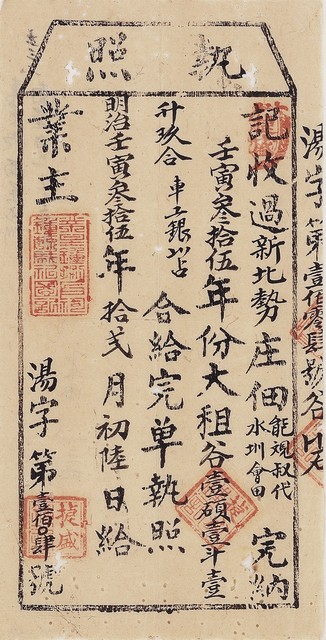 執照
湯字第壹佰零肆號谷
記收過新北勢庄佃
能規叔代
水圳會田
完納
壬寅叁拾伍年份大租谷壹碩壹斗壹
升玖合 車工銀 合給完單執照
明治壬寅叁拾伍年拾弍月初陸日給
業主
湯字第壹佰〇肆號
捷盛